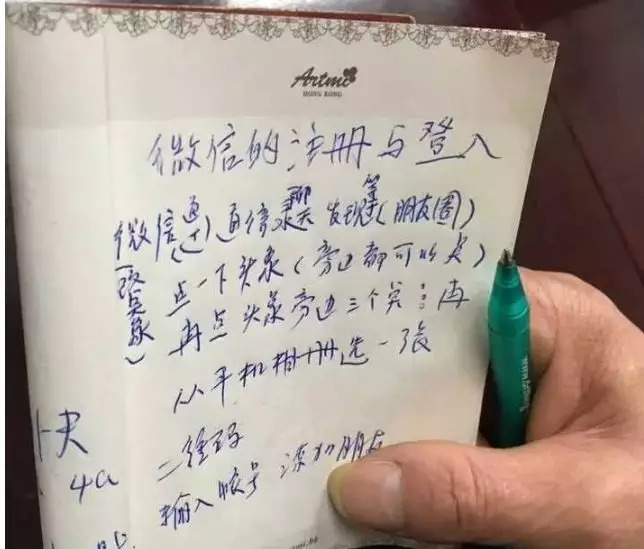 Artmi
HONG KONG
微信的注册与登入
微信(通讯)通信录 聊天 发现等(朋友圈)
点一下头象(旁边都可以点)
再点头象旁边三个点:再
从手机相册选一张
二维码
输入帐号 添加朋友
4a